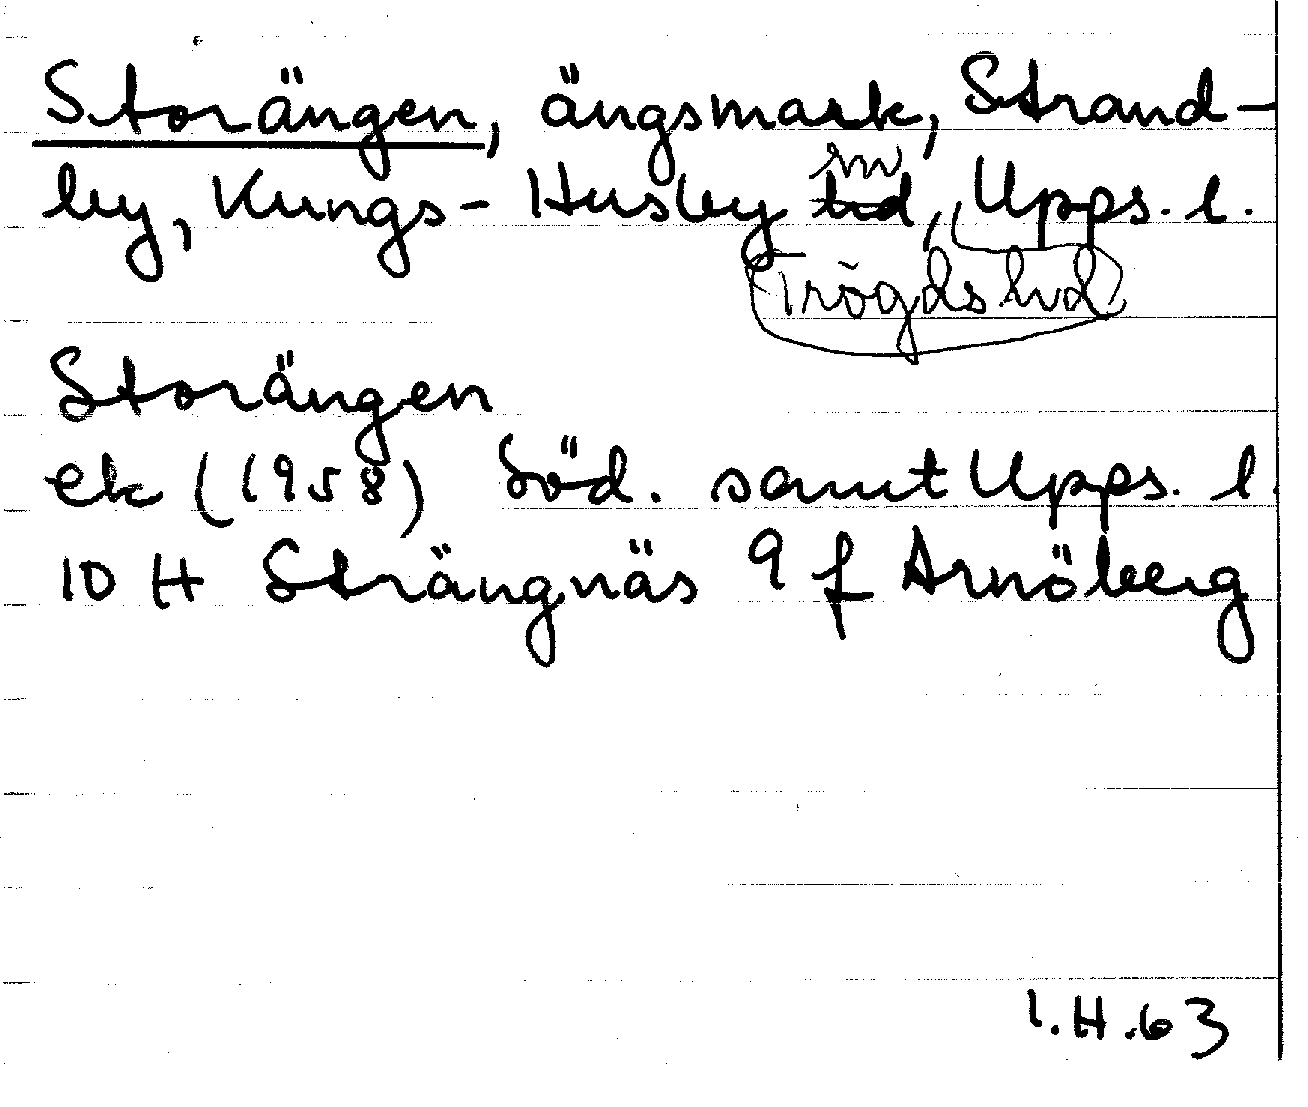 Storängen, ängsmark, Strand-
by, Kungs-Husby hd sn, Upps. l.
Trögds hd
Storängen
ek (1958) Söd. samt Upps. l.
10 H Strängnäs 9 f Arnöberg
I.H.63